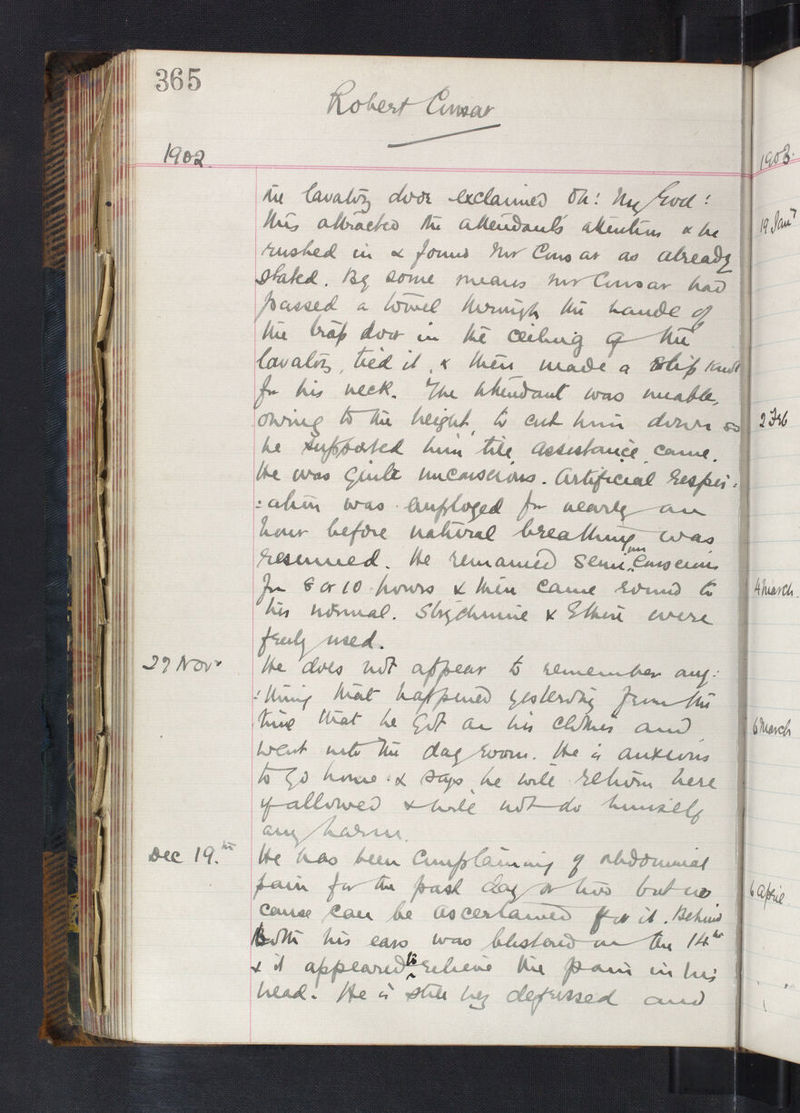 365
Robert Consar
1902.
the lavatory door exclaimed Oh! My God!
this attracted the attendant's attention & he
rushed in & found Mr Consar as already
stated. By some means Mr Consar had
passed a towel through the hande of
the trap door in the ceiling of the
lavatory, tied it, & then made a slip knot
for his neck. The attendant was unable,
owing to the height, to cut him down so
he supported him till assistance came.
He was quite unconscious. Artificial respir:
:ation was employed for nearly an
hour before natural breathing was
resumed. He remained semi unconscious
for 8 or 10 hours & then came round to
his normal. Strychnine & Ether were
freely used.
29 Novr
He does not appear to remember any:
:thing that happened yesterday from the
time that he got on his clothes and
went into the day room. He is anxious
to go home & says he will return here
if allowed & will not do himself
any harm.
Dec 19.th
He has been complaining of abdominal
pain for the past day or two but no
cause can be ascertained for it. Behind
both his ears was blistered on the 14th
& it appeared to relieve the pain in his
head. He is still very depressed and
1903.
19 Jany
2 Feb
4 March.
6 March
6 April